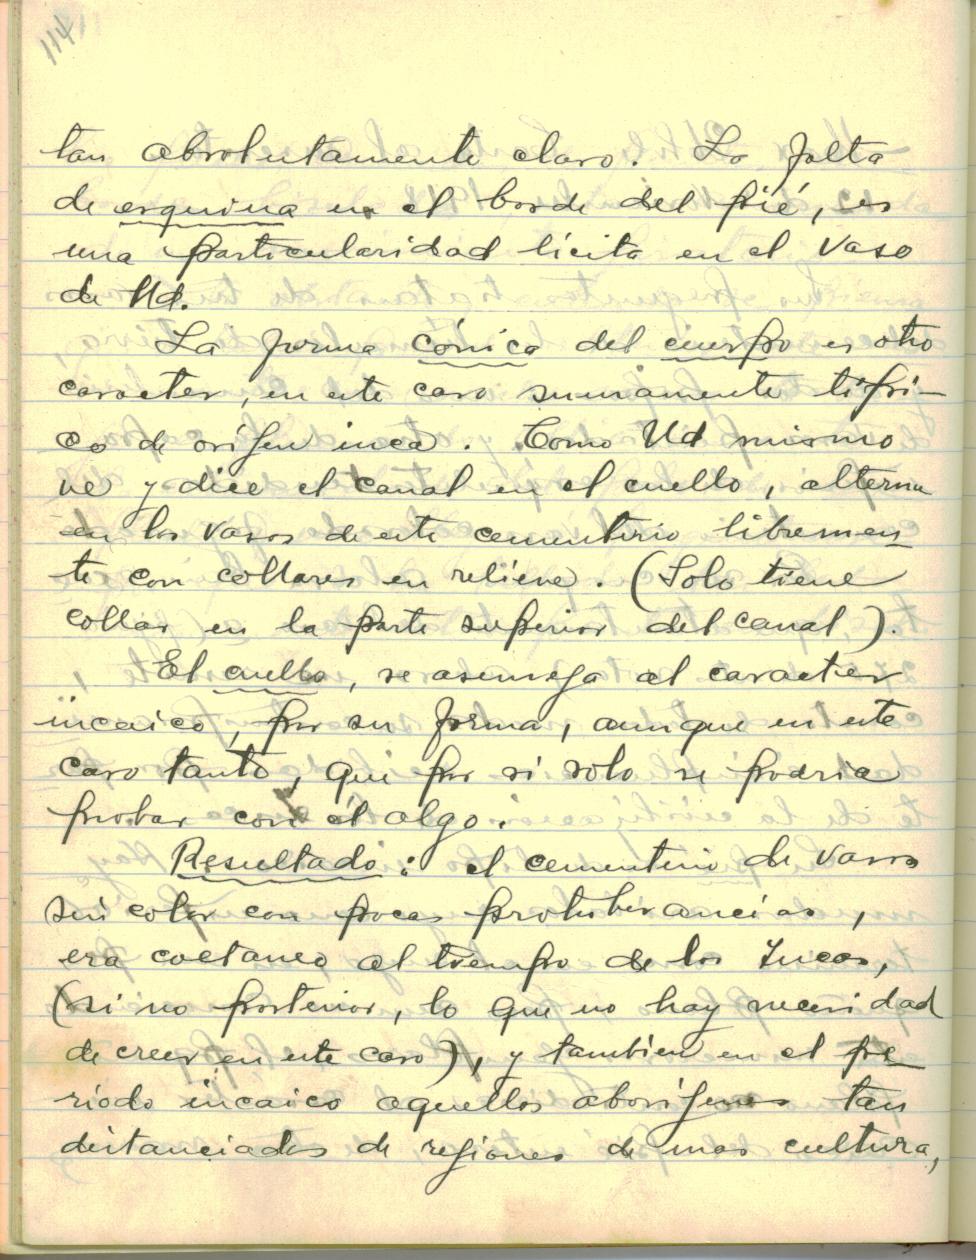 114
tan absolutamente claro. La falta
de esquina en el borde del pié, es
una particularidad lícita en el vaso
de Ud.
La forma cónica del cuerpo es otro
caracter, en este caso sumamente típi-
co de orígen inca. Como Ud mismo
ve y dice el canal en el cuello, alterna
en los vasos de este cementerio libremen-
te con collares en relieve. (Solo tiene
collar en la parte superior del canal).
El cuello, se asemeja al caracter
incaico, por su forma, aunque en este
caso tanto, que por si solo se podria
probar con él algo.
Resultado: el cementerio de vasos
sin color con pocas protuberancias,
era coetaneo al tiempo de los Incas,
(si no posterior, lo que no hay necesidad
de creer en este caso), y tambien en el pe-
ríodo incaico aquellos aborígenes tan
distanciados de regiones de mas cultura,